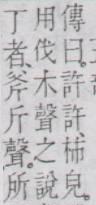 傳曰。許許、柹皃。
用伐木聲之說
丁者、斧斤聲。所